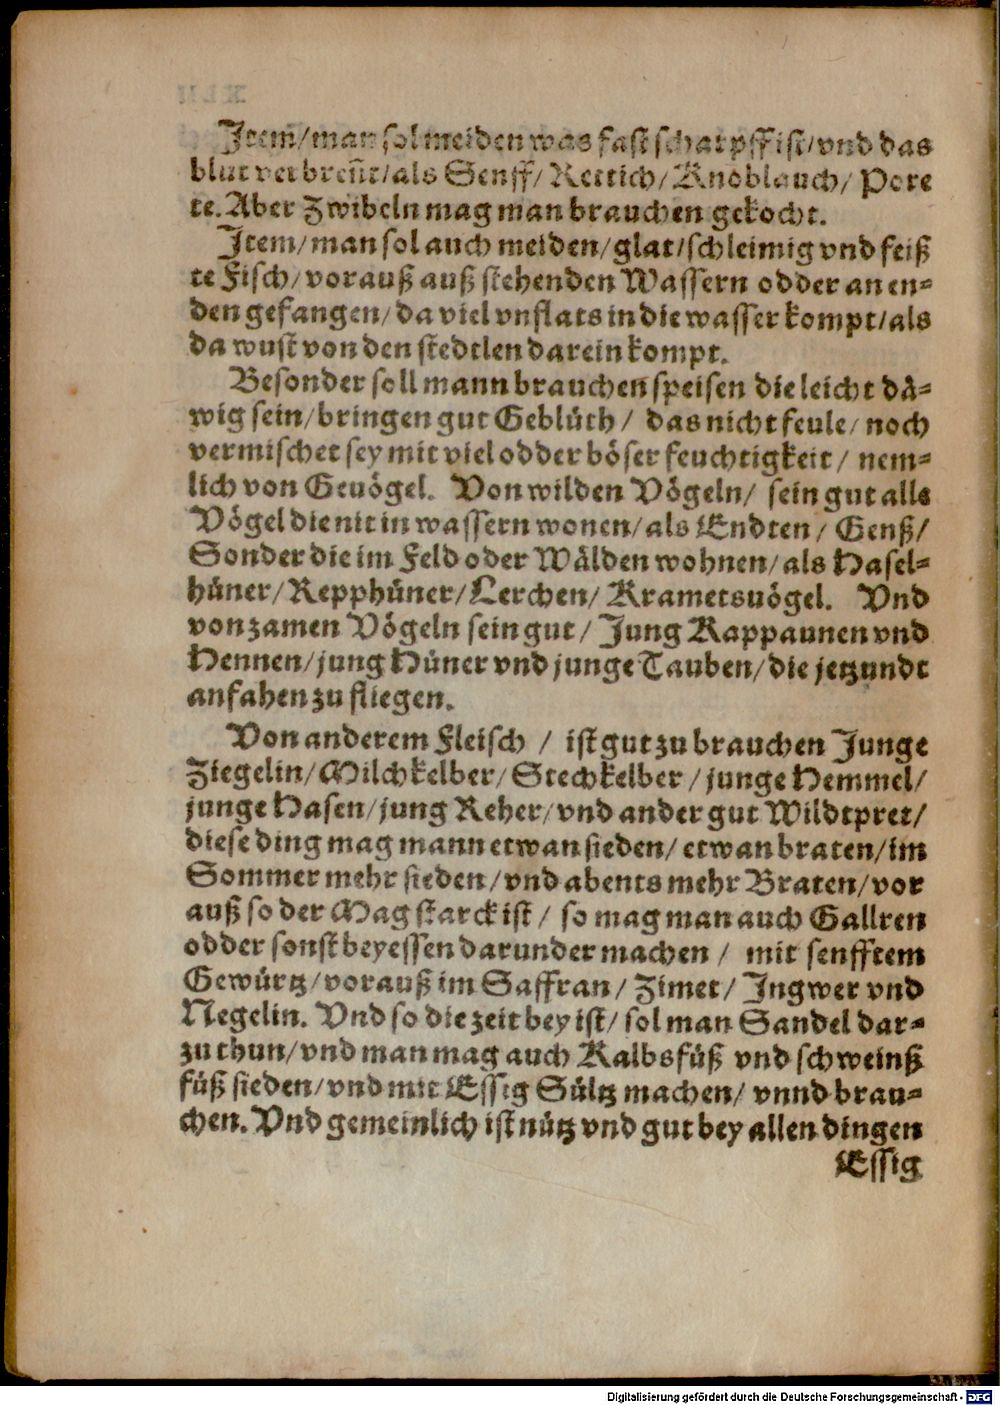 Item/man sol meiden was fast scharpff ist/vnd das
blut verbreñt/als Senff/ Rettich/ Knoblauch/ Pore
te. Aber Zwibeln mag man brauchen gekocht.
Item/man sol auch meiden/glat/schleimig vnd feiß
te Fisch/vorauß auß stehenden Wassern odder an en-
den gefangen/da viel vnflats in die wasser kompt/als
da wust von den stedtlen darein kompt.
Besonder soll mann brauchen speisen die leicht dä-
wig sein/bringen gut Geblüth / das nicht feule/ noch
vermischet sey mit viel odder böser feuchtigkeit / nem-
lich von Geuögel. Von wilden Vögeln/ sein gut alle
Vögel die nit in wassern wonen/als Endten / Genß/
Sonder die im Feld oder Wälden wohnen/als Hasel-
hüner/Repphüner/Lerchen/ Krametsuögel. Vnd
von zamen Vögeln sein gut / Jung Kappaunen vnd
Hennen/jung Hüner vnd junge Tauben/die jetzundt
anfahen zu fliegen.
Von anderem Fleisch / ist gut zu brauchen Junge
Ziegelin/Milchkelber/Stechkelber/junge Hemmel/
junge Hasen/jung Reher/vnd ander gut Wildtpret/
diese ding mag mann etwan sieden/etwan braten/im
Sommer mehr sieden/vnd abents mehr Braten/vor
auß so der Mag starck ist / so mag man auch Gallren
odder sonst beyessen darunder machen / mit senfftem
Gewürtz/vorauß im Saffran/ Zimet/ Ingwer vnd
Negelin. Vnd so die zeit bey ist/sol man Sandel dar-
zu thun/vnd man mag auch Kalbsfüß vnd schweinß
füß sieden/vnd mit Essig Sültz machen/ vnnd brau-
chen. Vnd gemeinlich ist nütz vnd gut bey allen dingen
Essig
Digitalisierung gefördert durch die Deutsche Forschungsgemeinschaft - DFG